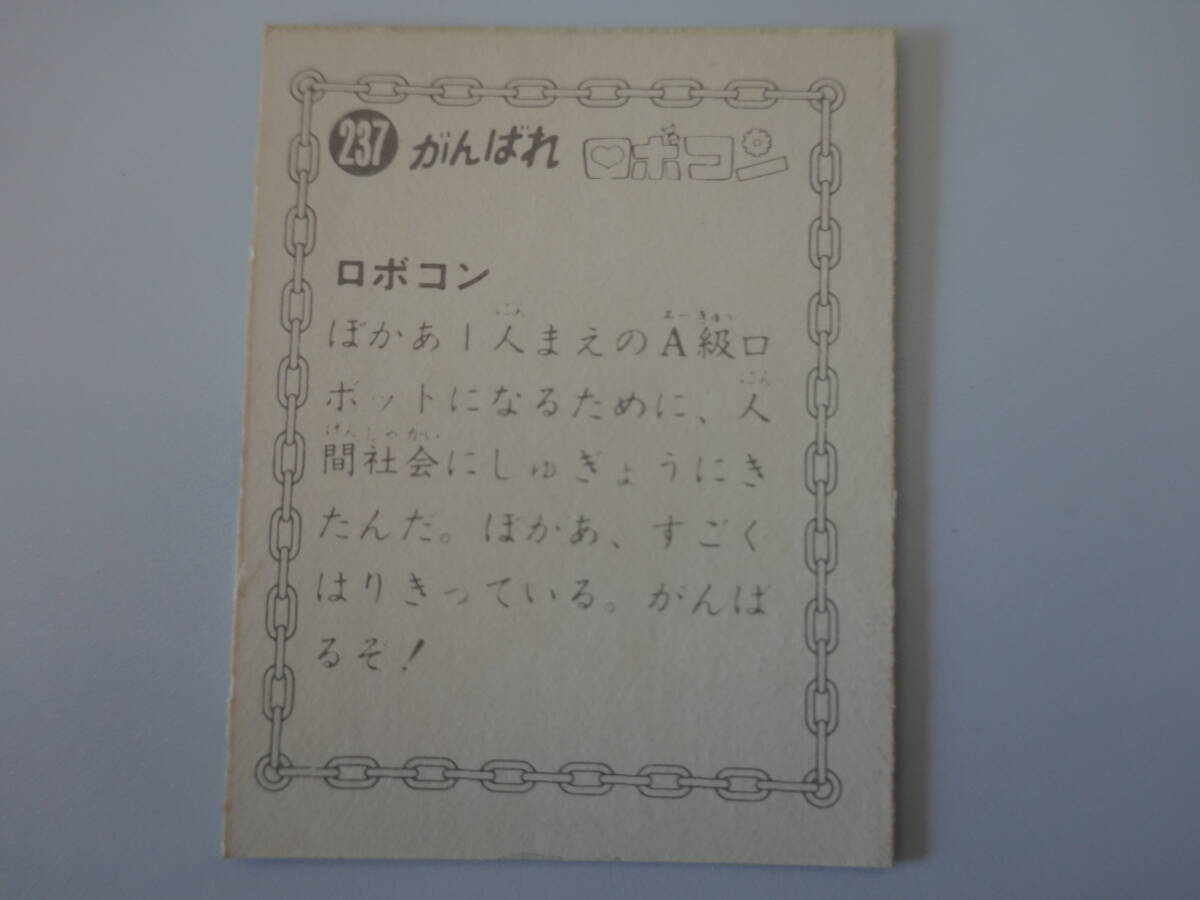 237 がんばれ ロボコン
ロボコン
ぼかあ1人まえのA級ロ
ボットになるために、人
間社会にしゅぎょうにき
たんだ。ぼかあ、すごく
はりきっている。がんば
るぞ!